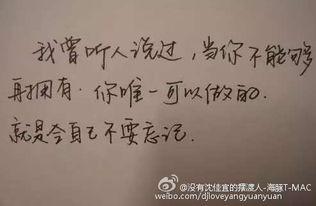 我曾听人说过，当你不能够
再拥有．你唯一可以做的．
就是令自己不要忘记．
@没有沈佳宜的摆渡人-海豚T-MAC
http://weibo.com/djloveyangyuanyuan